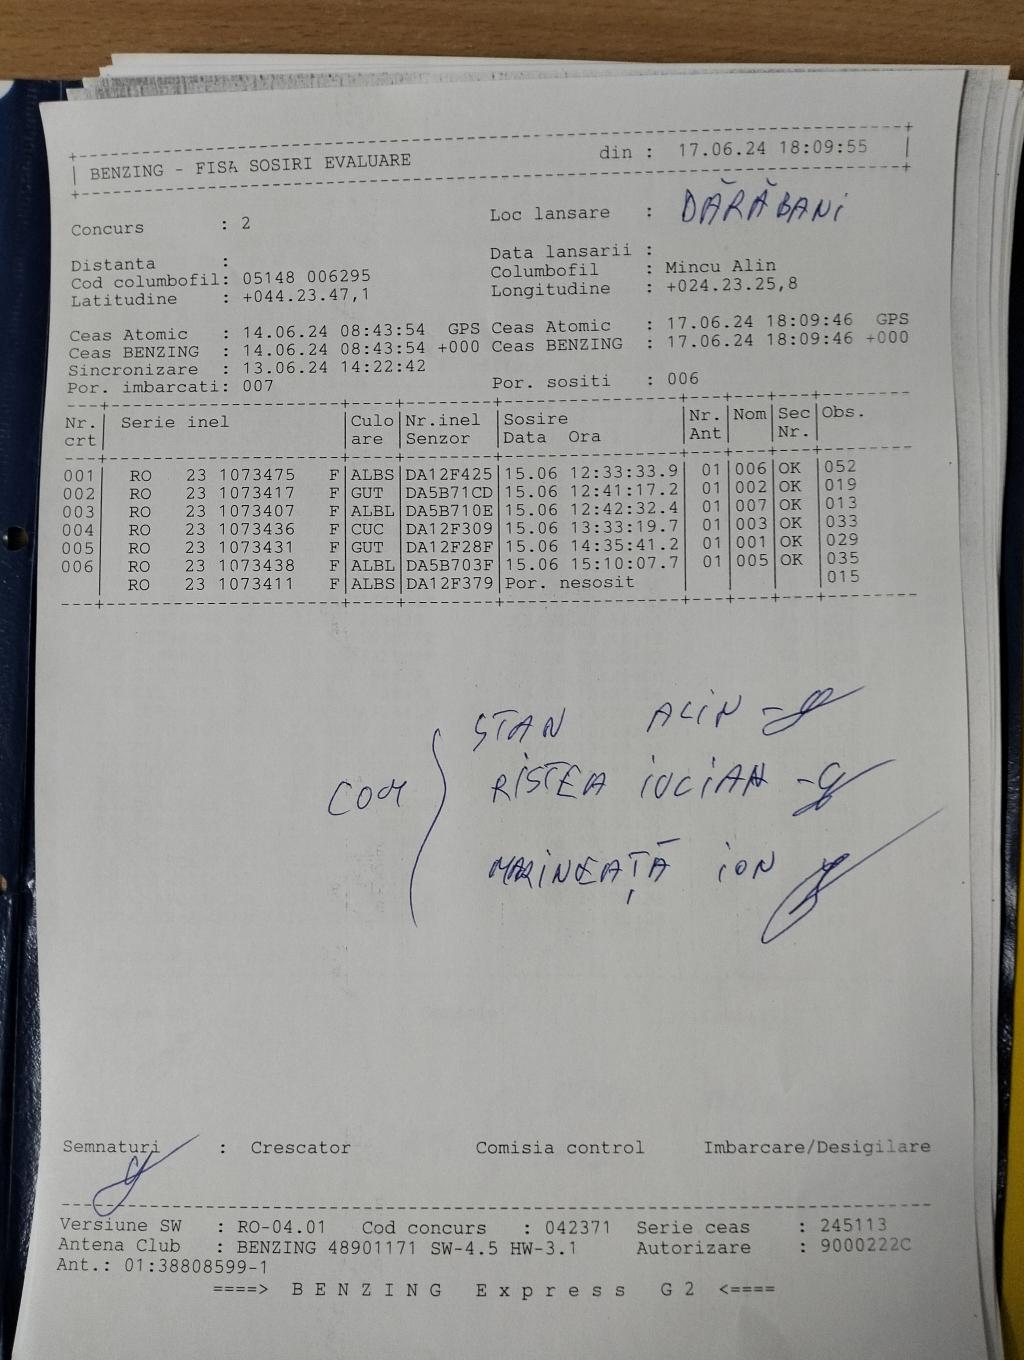 BENZING - FISA SOSIRI EVALUARE din : 17.06.24 18:09:55
Concurs : 2 Loc lansare : DĂRĂBANI
Distanta : Data lansarii :
Cod columbofil: 05148 006295 Columbofil : Mincu Alin
Latitudine : +044.23.47,1 Longitudine : +024.23.25,8
Ceas Atomic : 14.06.24 08:43:54 GPS Ceas Atomic : 17.06.24 18:09:46 GPS
Ceas BENZING : 14.06.24 08:43:54 +000 Ceas BENZING : 17.06.24 18:09:46 +000
Sincronizare : 13.06.24 14:22:42
Por. imbarcati: 007 Por. sositi : 006
Nr. Serie inel Culo Nr.inel Sosire Nr. Nom Sec Obs.
crt are Senzor Data Ora Ant Nr.
001 RO 23 1073475 F ALBS DA12F425 15.06 12:33:33.9 01 006 OK 052
002 RO 23 1073417 F GUT DA5B71CD 15.06 12:41:17.2 01 002 OK 019
003 RO 23 1073407 F ALBL DA5B710E 15.06 12:42:32.4 01 007 OK 013
004 RO 23 1073436 F CUC DA12F309 15.06 13:33:19.7 01 003 OK 033
005 RO 23 1073431 F GUT DA12F28F 15.06 14:35:41.2 01 001 OK 029
006 RO 23 1073438 F ALBL DA5B703F 15.06 15:10:07.7 01 005 OK 035
RO 23 1073411 F ALBS DA12F379 Por. nesosit 015
STAN ALIN
COM RISTEA IULIAN
MARINEAȚĂ ION
Semnaturi : Crescator Comisia control Imbarcare/Desigilare
Versiune SW : RO-04.01 Cod concurs : 042371 Serie ceas : 245113
Antena Club : BENZING 48901171 SW-4.5 HW-3.1 Autorizare : 9000222C
Ant.: 01:38808599-1
====> B E N Z I N G E x p r e s s G 2 <====